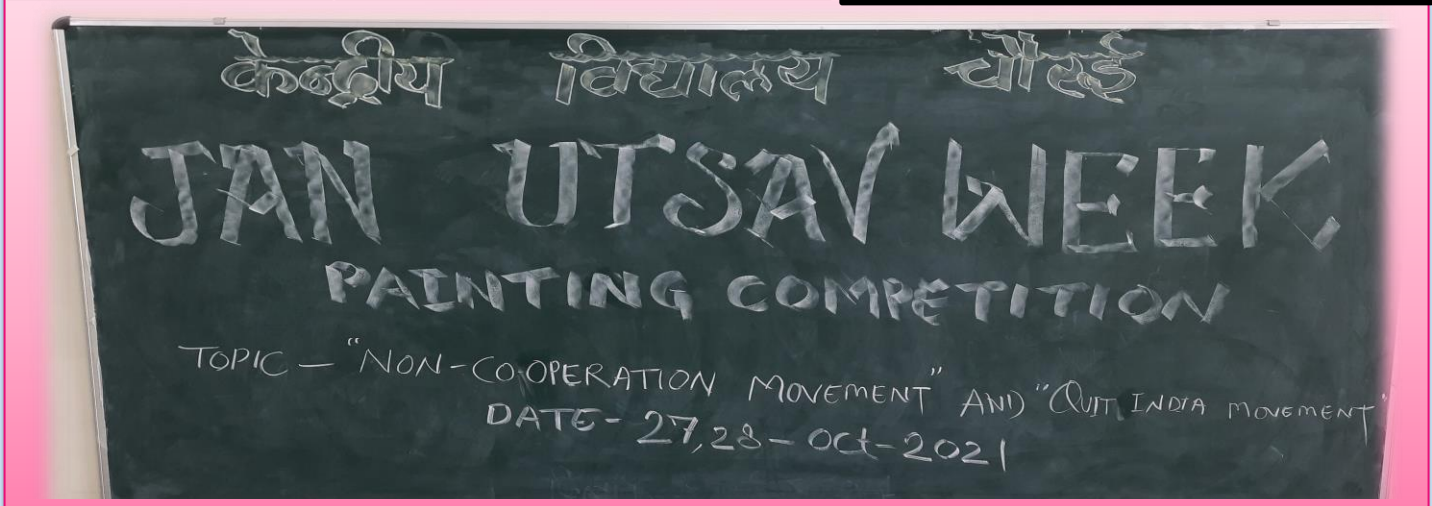 केन्द्रीय विद्यालय चौरई
JAN UTSAV WEEK
PAINTING COMPETITION
TOPIC - "NON-CO-OPERATION MOVEMENT" AND "QUIT INDIA MOVEMENT"
DATE - 27,28 - Oct - 2021